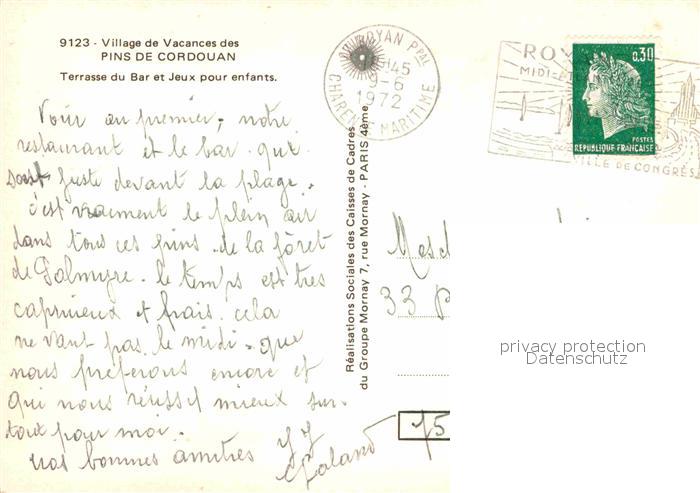 9123 - Village de Vacances des
PINS DE CORDOUAN
Terrasse du Bar et Jeux pour enfants.
Voici en premier, notre
restaurant et le bar qui
sont juste devant la plage.
c'est vraiment le plein air
dans tous ces pins de la fôret
de Palmyre. le temps est très
capricieux et frais. cela
ne vaut pas le midi. que
nous preferons encore et
qui nous réussit mieux sur-
tout pour moi.
nos bonnes amitiés
Réalisations Sociales des Caisses de Cadres
du Groupe Mornay 7, rue Mornay - PARIS 4ème
ROYAN Ppal
45
9-6
1972
CHARENTE MARITIME
ROY
MIDI-ET
VILLE DE CONGRÈS
0,30
POSTES
RÉPUBLIQUE FRANÇAISE
33
75
privacy protection
Datenschutz